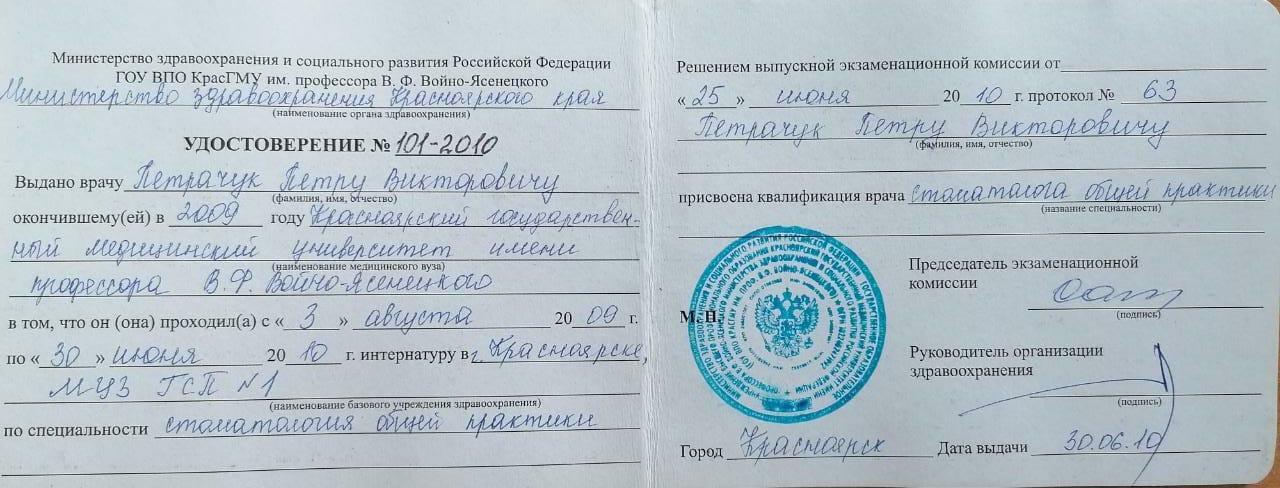 Министерство здравоохранения и социального развития Российской Федерации
ГОУ ВПО КрасГМУ им. профессора В. Ф. Войно-Ясенецкого
Министерство здравоохранения Красноярского края
(наименование органа здравоохранения)
УДОСТОВЕРЕНИЕ № 101-2010
Выдано врачу Петрачук Петру Викторовичу
(фамилия, имя, отчество)
окончившему(ей) в 2009 году Красноярский государствен-
ный медицинский университет имени
(наименование медицинского вуза)
профессора В.Ф. Войно-Ясенецкого
в том, что он (она) проходил(а) с «3» августа 2009 г.
по «30» июня 2010 г. интернатуру в г. Красноярске,
МУЗ ГСП №1
(наименование базового учреждения здравоохранения)
по специальности стоматология общей практики
Решением выпускной экзаменационной комиссии от
«25» июня 2010 г. протокол № 63
Петрачук Петру Викторовичу
(фамилия, имя, отчество)
присвоена квалификация врача стоматолога общей практики
(название специальности)
Председатель экзаменационной
комиссии
(подпись)
М. П.
Руководитель организации
здравоохранения
(подпись)
Город Красноярск Дата выдачи 30.06.10